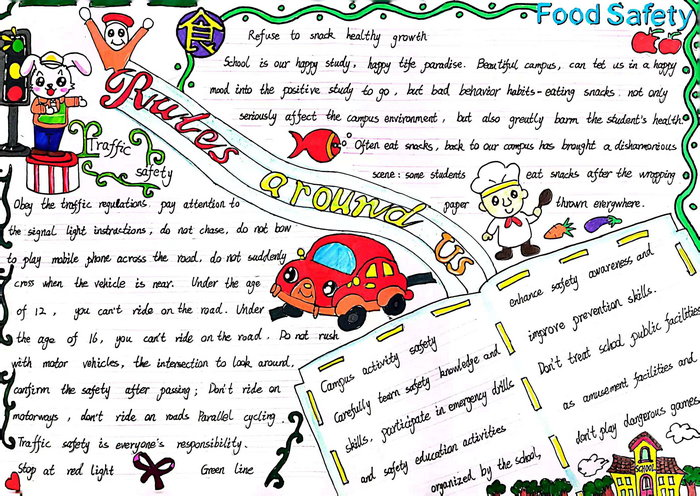 Food Safety
食
Refuse to snack healthy growth
School is our happy study, happy life paradise. Beautiful campus, can let us in a happy
mood into the positive study to go, but bad behavior habits-eating snacks. not only
seriously affect the campus environment, but also greatly harm the student's health.
Often eat snacks, back to our campus has brought a disharmonious
scene: some students eat snacks after the wrapping
paper thrown everywhere.
Rules around us
Traffic
safety
Obey the traffic regulations. pay attention to
the signal light instructions, do not chase, do not bow
to play mobile phone across the road, do not suddenly
cross when the vehicle is near. Under the age
of 12, you can't ride on the road. Under
the age of 16, you can't ride on the road. Do not rush
with motor vehicles, the intersection to look around,
confirm the safety after passing; Don't ride on
motorways, don't ride on roads Parallel cycling.
Traffic safety is everyone's responsibility.
Stop at red light Green line
Campus activity safety
Carefully learn safety knowledge and
skills, participate in emergency drills
and safety education activities
organized by the school,
enhance safety awareness and
improve prevention skills.
Don't treat school public facilities
as amusement facilities and
don't play dangerous games
SCHOOL